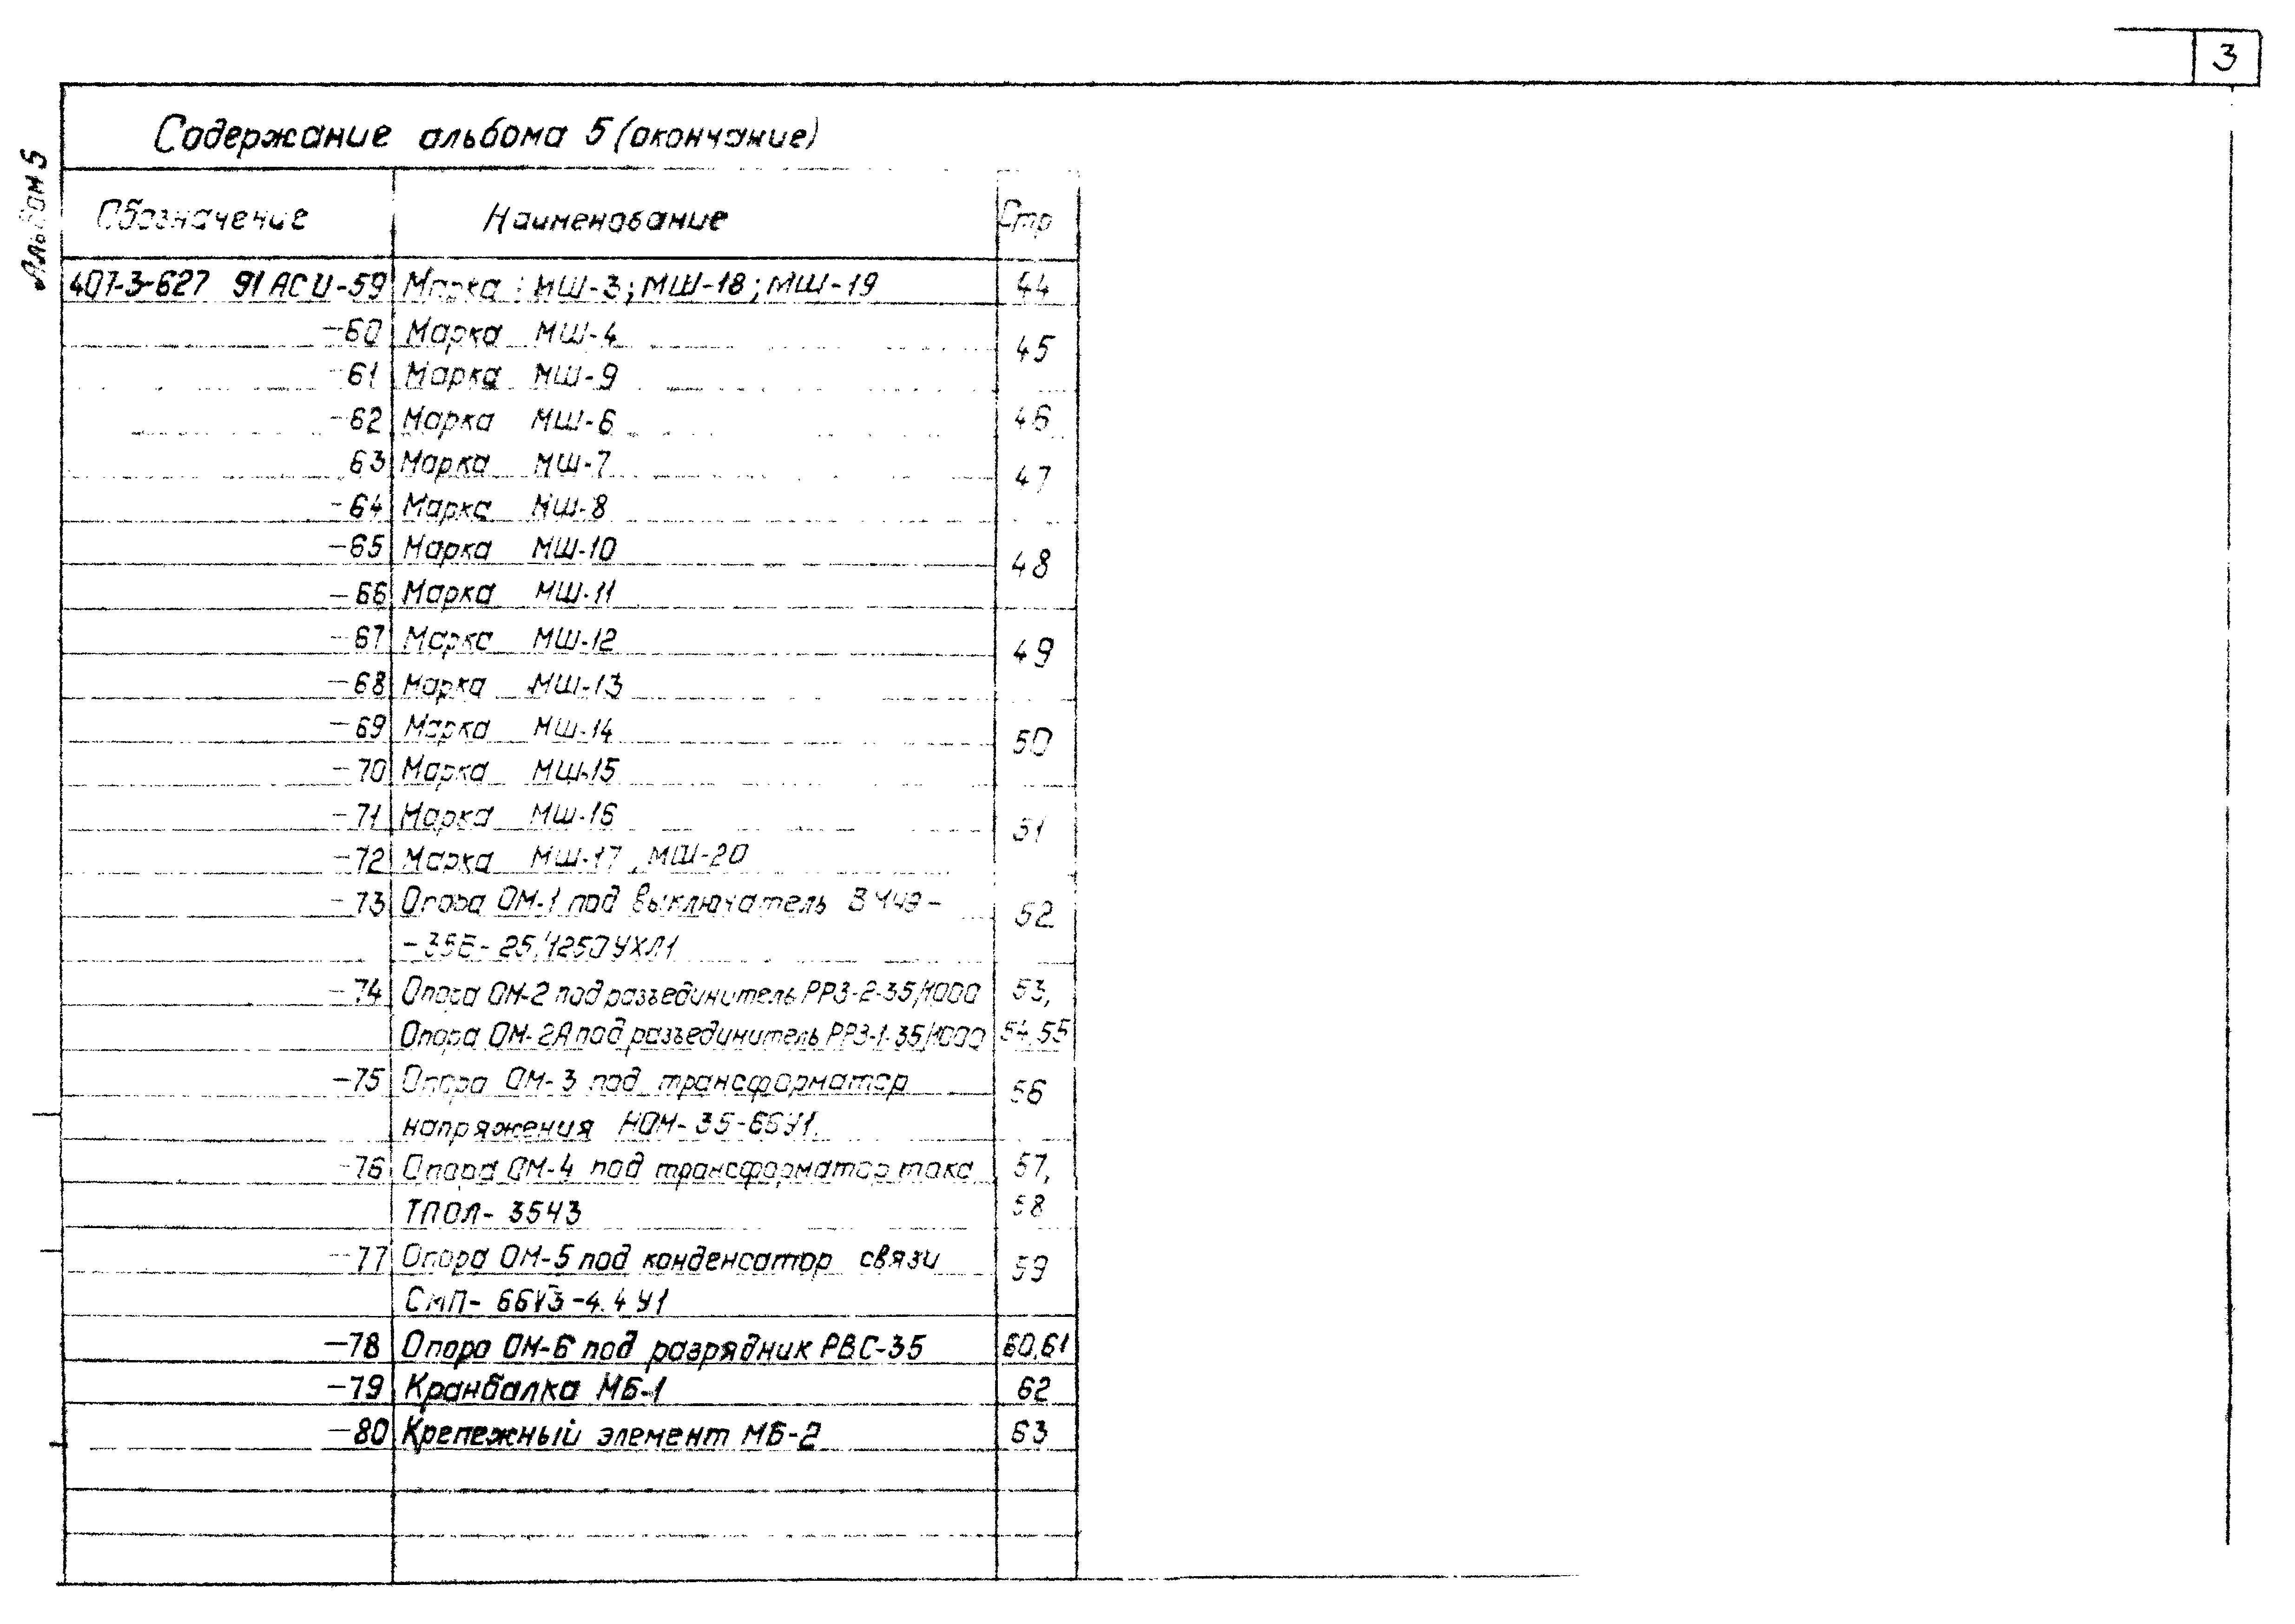 3
Альбом 5
Содержание альбома 5 (окончание)
Обозначение Наименование Стр
407-3-627 91 АСИ-59 Марка: МШ-3; МШ-18; МШ-19 44
-60 Марка МШ-4 45
-61 Марка МШ-9
-62 Марка МШ-6 46
63 Марка МШ-7 47
-64 Марка МШ-8
-65 Марка МШ-10 48
-66 Марка МШ-11
-67 Марка МШ-12 49
-68 Марка МШ-13
-69 Марка МШ-14 50
-70 Марка МШ-15
-71 Марка МШ-16 51
-72 Марка МШ-17, МШ-20
-73 Опора ОМ-1 под выключатель 52
-35Б-25/1250УХЛ1
-74 Опора ОМ-2 под разъединитель РРЗ-2-35/1000 53,
Опора ОМ-2А под разъединитель РРЗ-1-35/1000 54,55
-75 Опора ОМ-3 под трансформатор 56
напряжения НОМ-35-66У1
-76 Опора ОМ-4 под трансформатор тока 57,
ТПОЛ-35У3 58
-77 Опора ОМ-5 под конденсатор связи 59
СМП-66√3-4.4У1
-78 Опора ОМ-6 под разрядник РВС-35 60,61
-79 Кранбалка МБ-1 62
-80 Крепежный элемент МБ-2 63